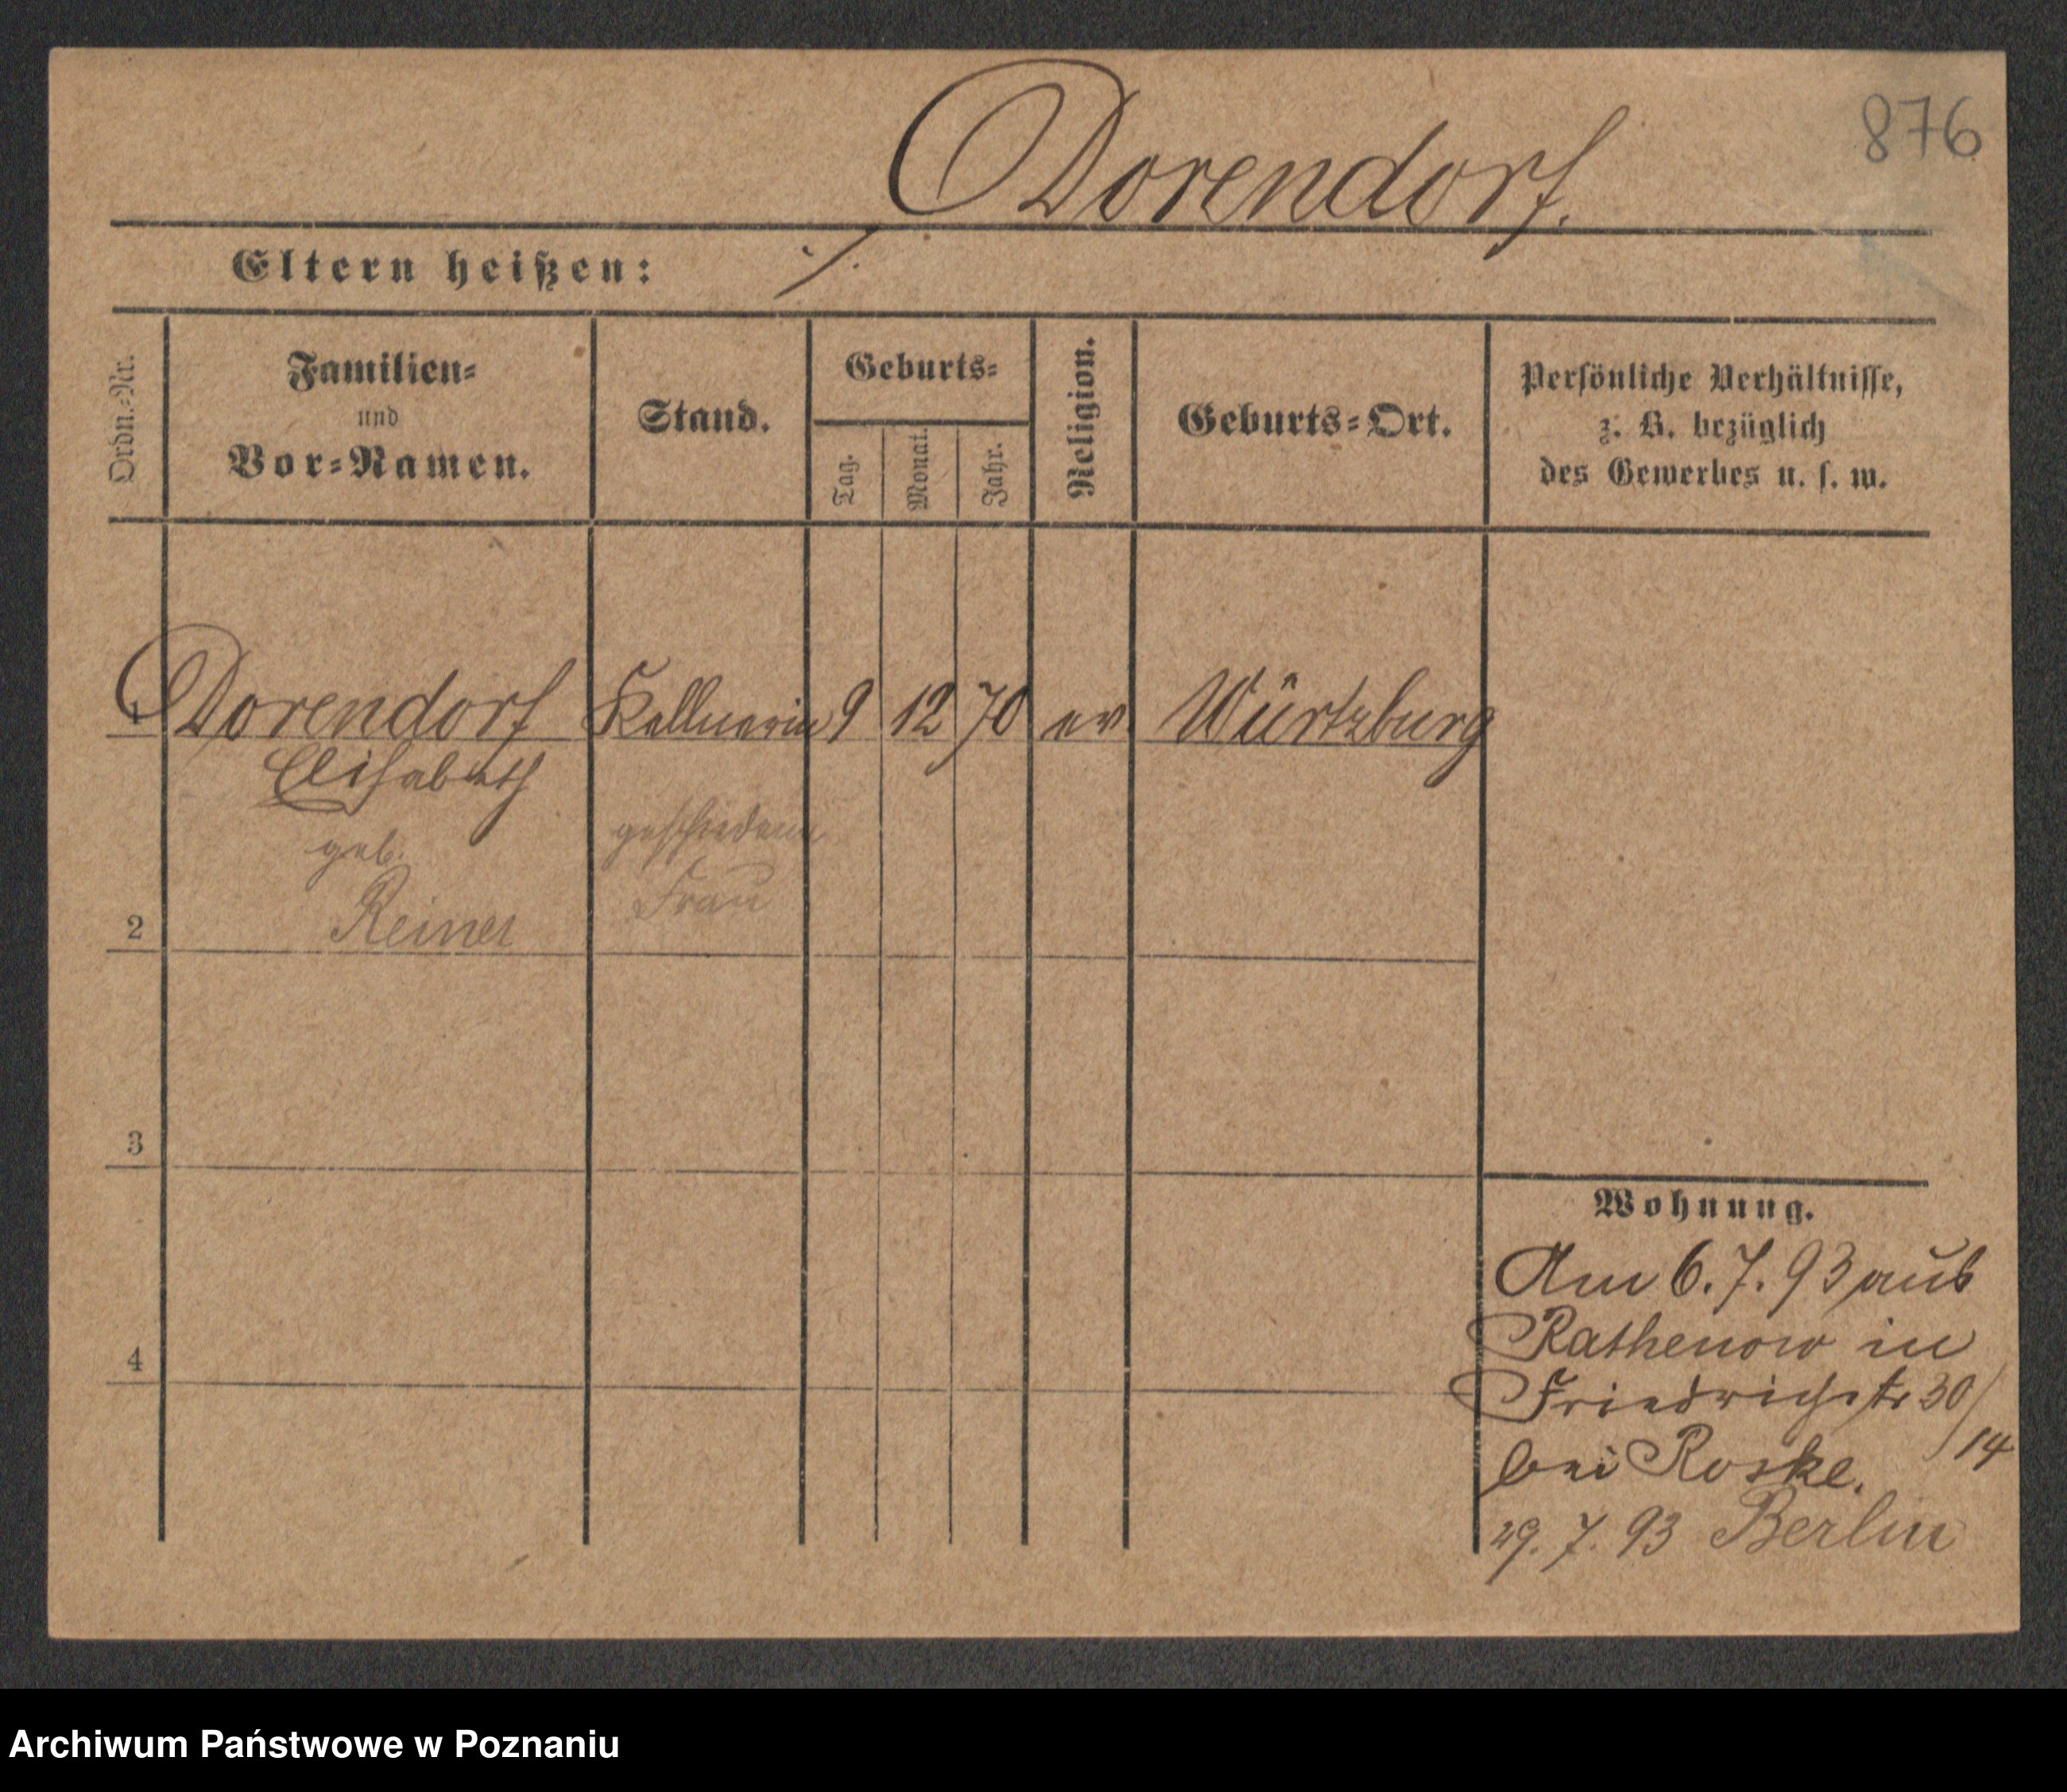 876
Dorendorf.
Eltern heißen: ./.
Ordn.-Nr.
Familien-
und
Vor-Namen.
Stand.
Geburts-
Tag.
Monat.
Jahr.
Religion.
Geburts-Ort.
Persönliche Verhältnisse,
z. B. bezüglich
des Gewerbes u. s. w.
1 Dorendorf Kellnerin 9 12 70 ev. Würtzburg
Elisabeth
geb. geschiedene
Reiner Frau
2
3
4
Wohnung.
Am 6. 7. 93 aus
Rathenow in
Friedrichstr 30/14
bei Roske.
29. 7. 93 Berlin
Archiwum Państwowe w Poznaniu